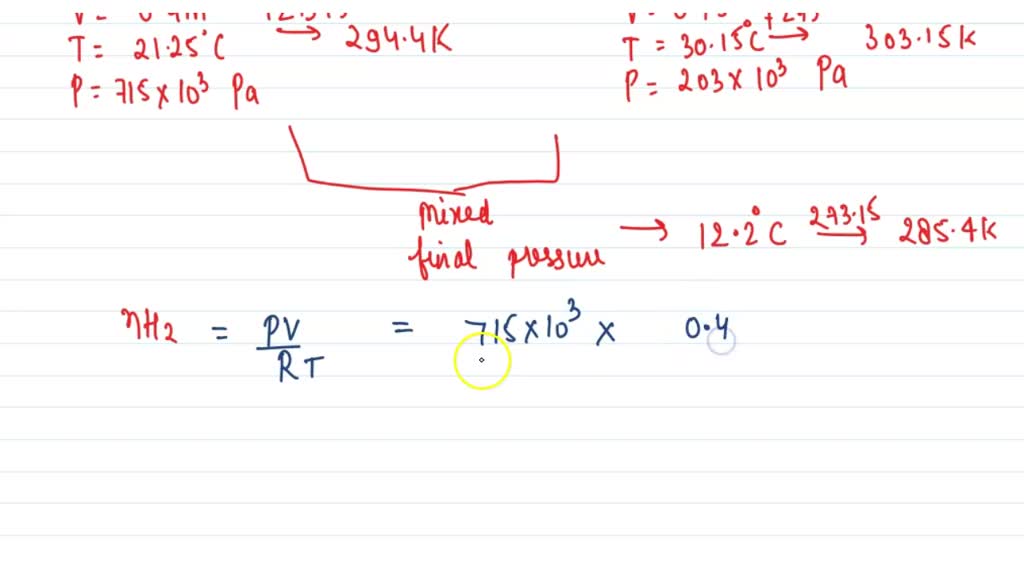 T = 21.25°C → 294.4K
P = 715 × 10³ Pa
T = 30.15°C → 303.15K
P = 203 × 10³ Pa
mixed
final pressure → 12.2°C 273.15 → 285.4K
nH2 = PV = 715 × 10³ × 0.4
RT